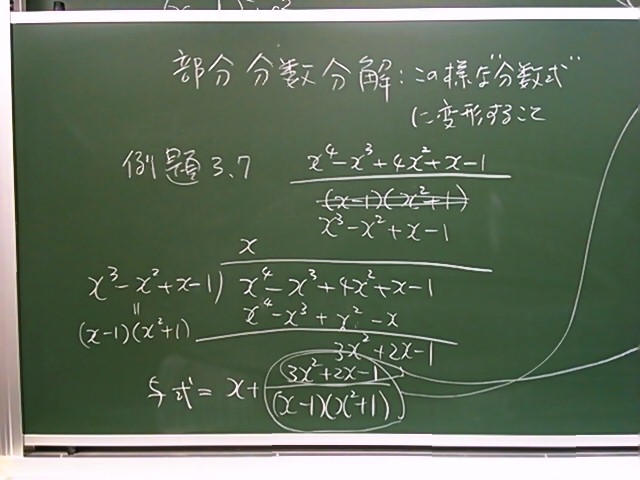 部分分数分解:この様な"分数式"
に変形すること
例題3.7
x⁴-x³+4x²+x-1
(x-1)(x²+1)
x³-x²+x-1
x
x³-x²+x-1)x⁴-x³+4x²+x-1
=
x⁴-x³+x²-x
(x-1)(x²+1)
3x²+2x-1
与式=x+
3x²+2x-1
(x-1)(x²+1)